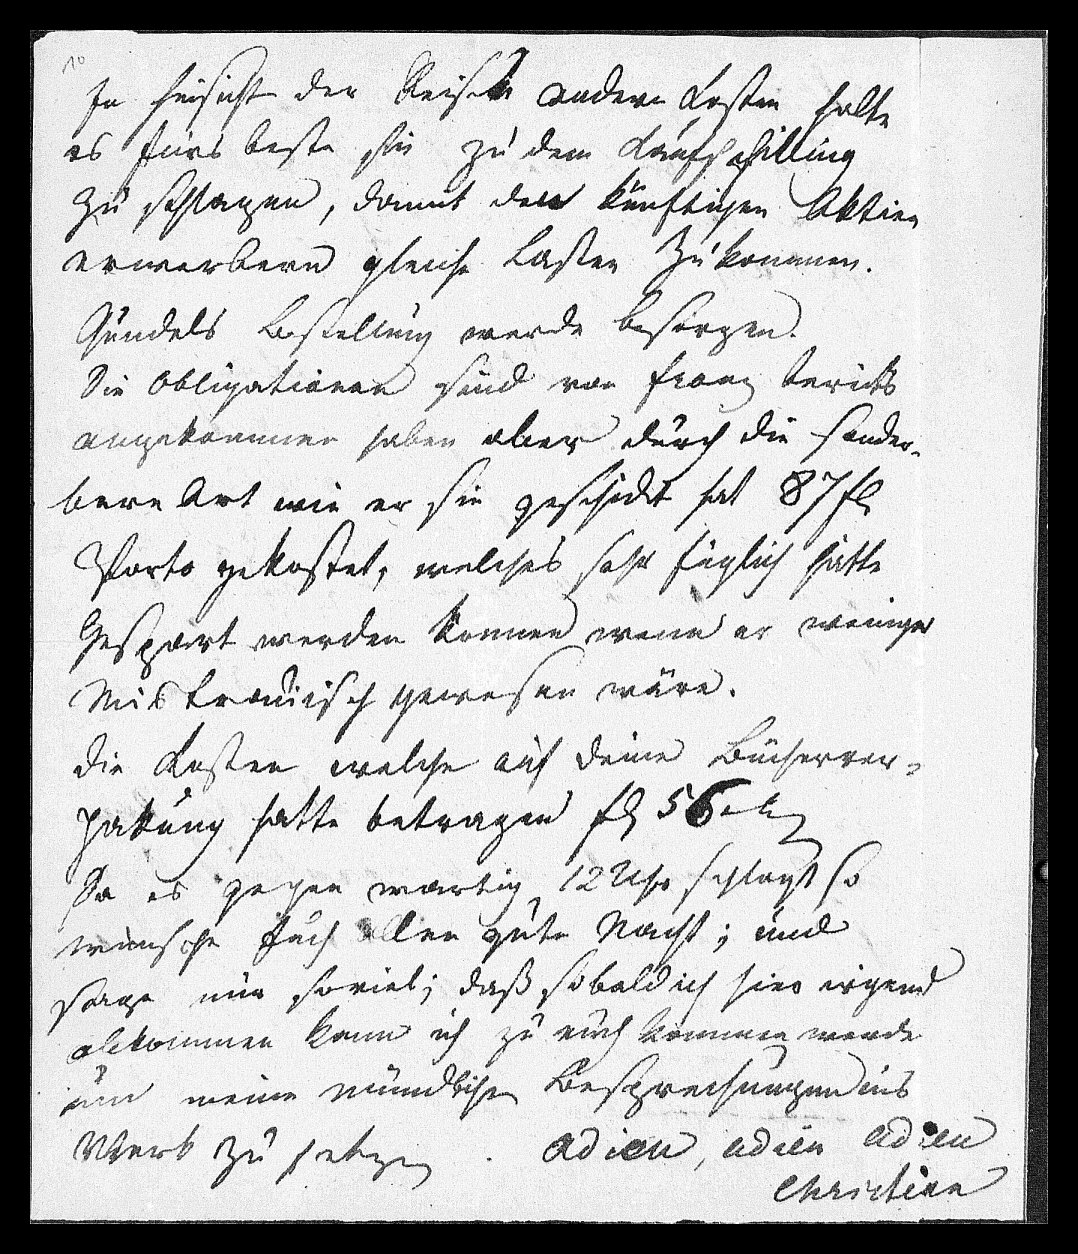 10
In hinsicht der Reise andern Kosten halte
es fürs beste sie zu dem Kaufschilling
zu schlagen, damit den künftigen Aktien
erwerbern gleiche Lasten zukommen.
Gündels Bestellung werde besorgen.
Die Obligationen sind von Franz bereits
angekommen haben aber durch die sonder-
bare Art wie er sie geschickt hat 87 fl
Porto gekostet, welches sehr füglich hätte
Gespart werden können wenn er weniger
Mistrauisch gewesen wäre.
die Kosten welche auf deine Bücherver-
pakung hatte betragen fl 56
Da es gegenwärtig 12 Uhr schlagt so
wünsche Euch allen gute Nacht; und
sage nur soviel; daß sobald ich hier irgend
abkommen kann ich zu euch kommen werde
um meine mündlichen Besprechungen ins
Werk zu setzen. adieu, adieu adieu
Christian